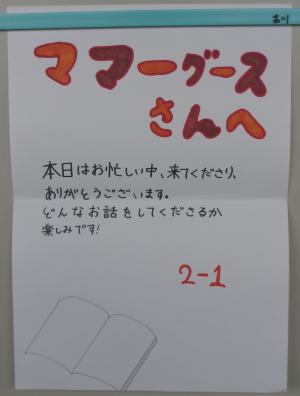 ママーグース
さんへ
本日はお忙しい中、来てくださり、
ありがとうございます。
どんなお話をしてくださるか
楽しみです!
2-1